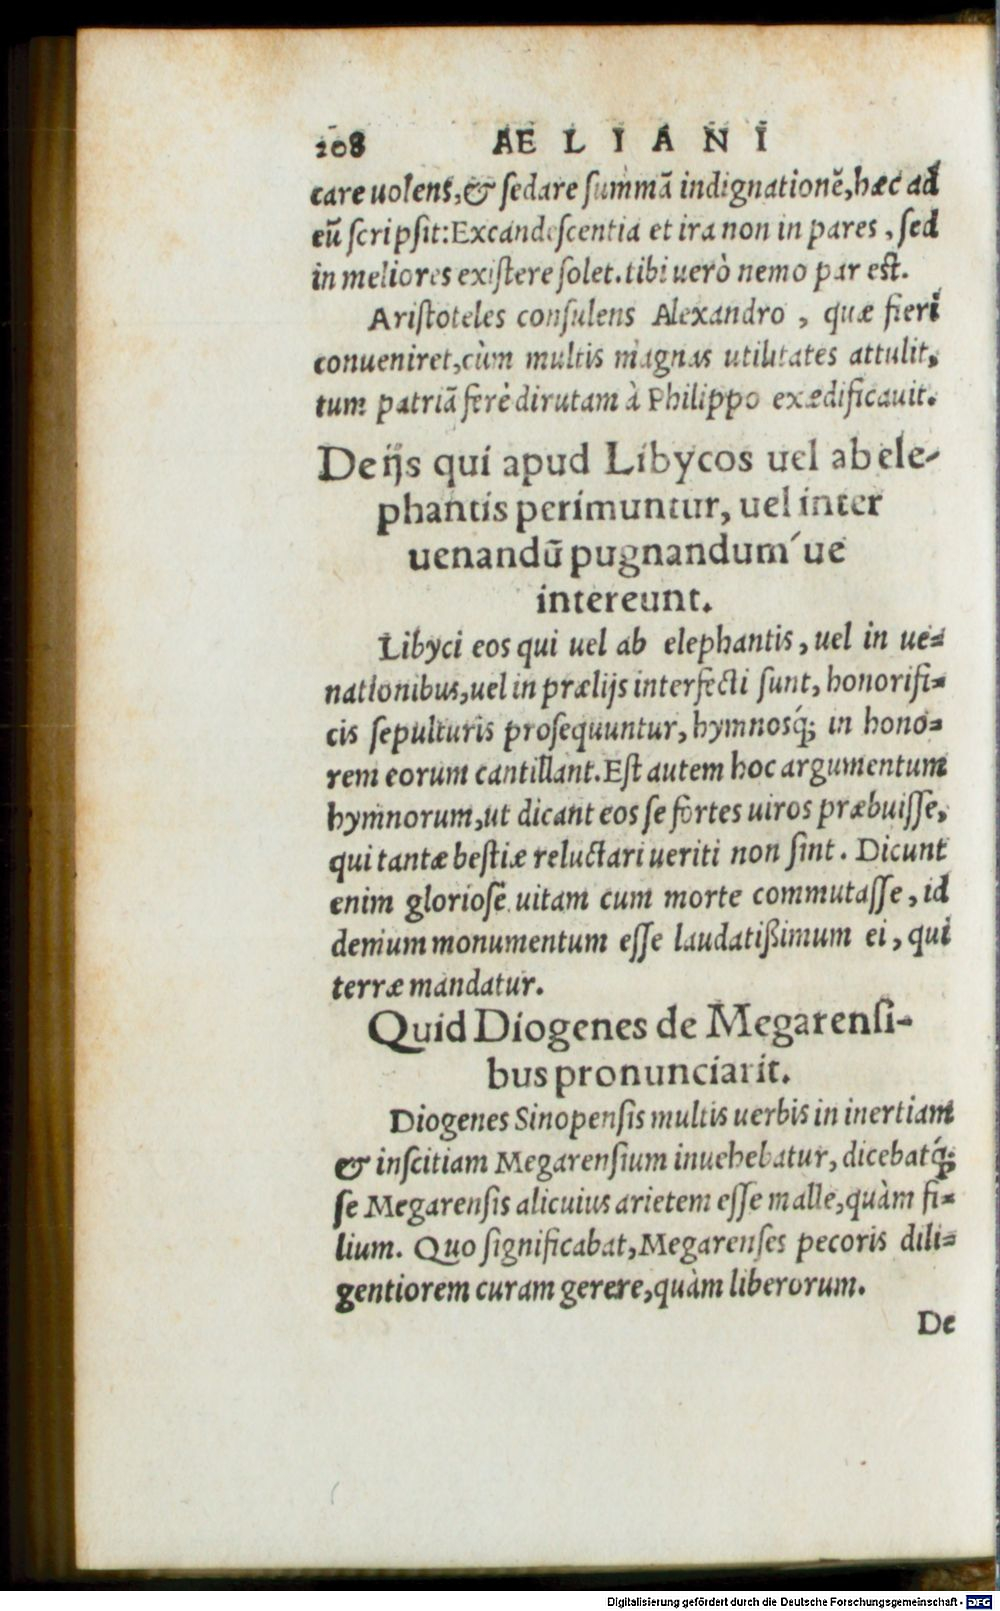 208 AELIANI
care uolens, & sedare summã indignationẽ, hæc ad
eũ scripsit: Excandescentia et ira non in pares, sed
in meliores existere solet. tibi uerò nemo par est.
Aristoteles consulens Alexandro, quæ fieri
conueniret, cùm multis magnas utilitates attulit,
tum patriã ferè dirutam à Philippo exædificauit.
De ijs qui apud Libycos uel ab ele-
phantis perimuntur, uel inter
uenandũ pugnandum´ue
intereunt.
Libyci eos qui uel ab elephantis, uel in ue-
nationibus, uel in prælijs interfecti sunt, honorifi-
cis sepulturis prosequuntur, hymnosq́; in hono-
rem eorum cantillant. Est autem hoc argumentum
hymnorum, ut dicant eos se fortes uiros præbuisse,
qui tantæ bestiæ reluctari ueriti non sint. Dicunt
enim gloriosè uitam cum morte commutasse, id
demum monumentum esse laudatißimum ei, qui
terræ mandatur.
Quid Diogenes de Megarensi-
bus pronunciarit.
Diogenes Sinopensis multis uerbis in inertiam
& inscitiam Megarensium inuehebatur, dicebatq́;
se Megarensis alicuius arietem esse malle, quàm fi-
lium. Quo significabat, Megarenses pecoris dili-
gentiorem curam gerere, quàm liberorum.
De
Digitalisierung gefördert durch die Deutsche Forschungsgemeinschaft - DFG